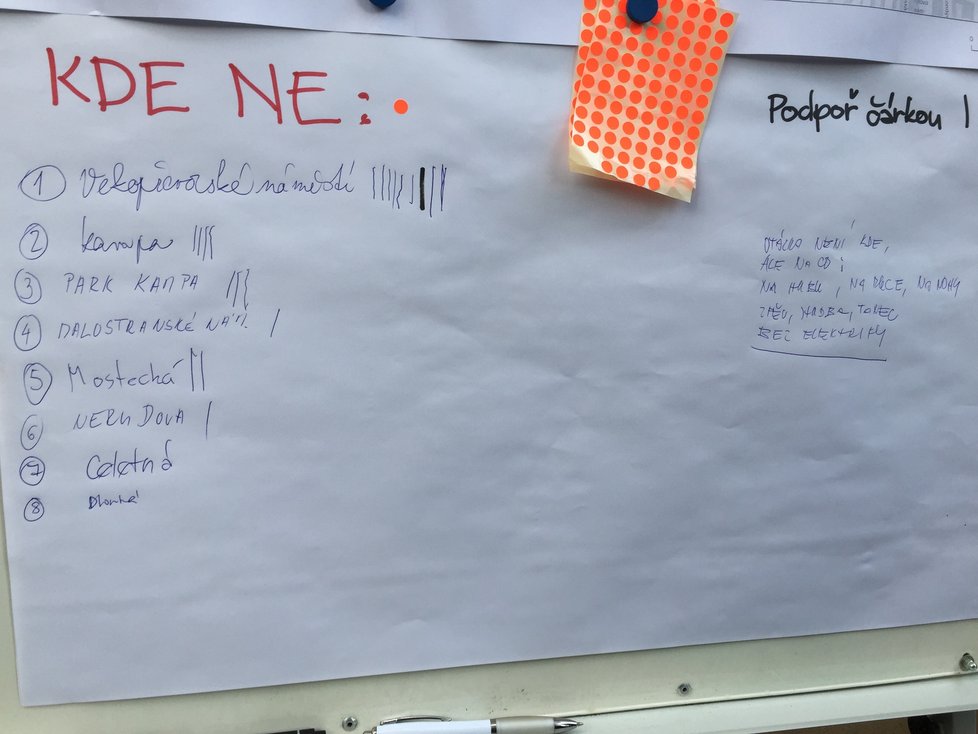 KDE NE:
Podpoř čárkou |
1 Velkopřevorské náměstí
2 kampa
3 PARK KAMPA
4 MALOSTRANSKÉ NÁM.
5 Mostecká
6 NERUDOVA
7 Celetná
8 Dlouhá
OTÁZKA NENÍ KDE,
ALE NA CO:
NA HUBU, NA RUCE, NA NOHY
ZPĚV, HUDBA, TANEC
BEZ ELEKTRIKY